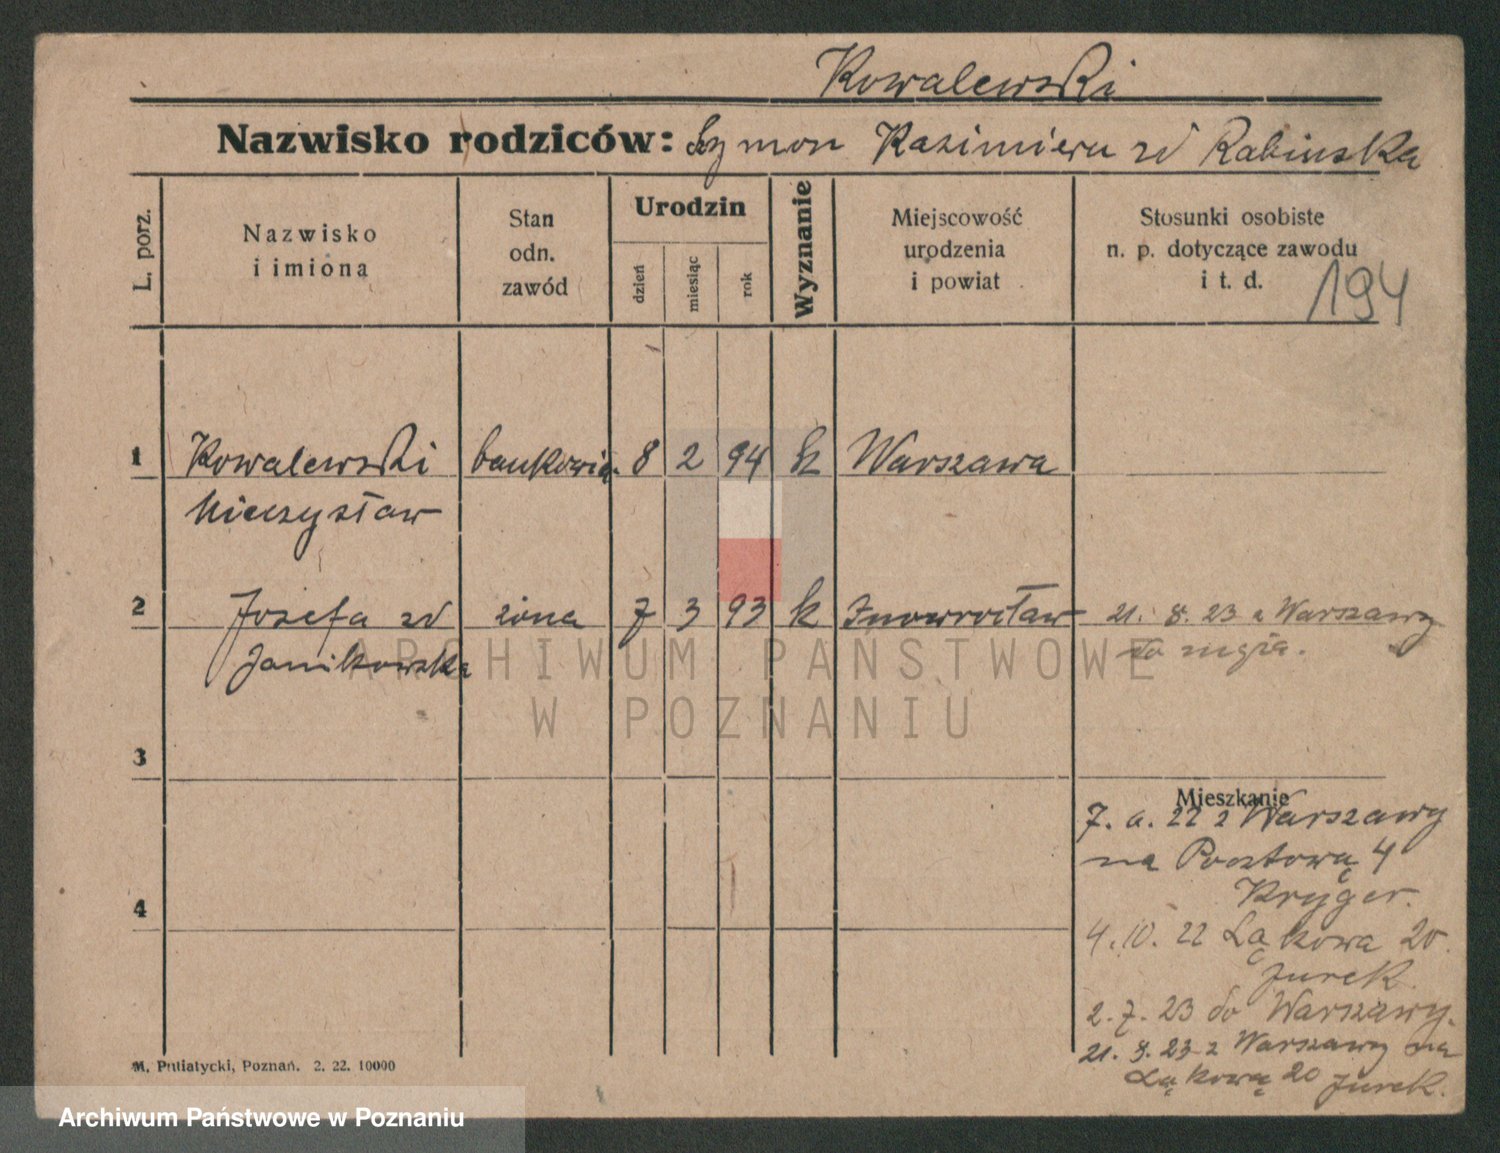 Kowalewski
Nazwisko rodziców: Szymon Kazimiera zd Rabinska
L. porz.
Nazwisko
i imiona
Stan
odn.
zawód
Urodzin
dzień
miesiąc
rok
Wyznanie
Miejscowość
urodzenia
i powiat
Stosunki osobiste
n. p. dotyczące zawodu
i t. d.
194
1 Kowalewski bankowiec 8 2 94 k Warszawa
Mieczysław
2 Józefa zd żona 7 3 93 k Inowrocław 21. 8. 23 z Warszawy
Janikowska do męża.
ARCHIWUM PAŃSTWOWE
W POZNANIU
3
Mieszkanie
7. a. 22 z Warszawy
na Pocztową 4
Kryger.
4
4. 10. 22 Łąkowa 20.
Jurek.
2. 7. 23 do Warszawy.
21. 8. 23 z Warszawy na
Łąkową 20 Jurek.
M. Putiatycki, Poznań. 2. 22. 10000
Archiwum Państwowe w Poznaniu